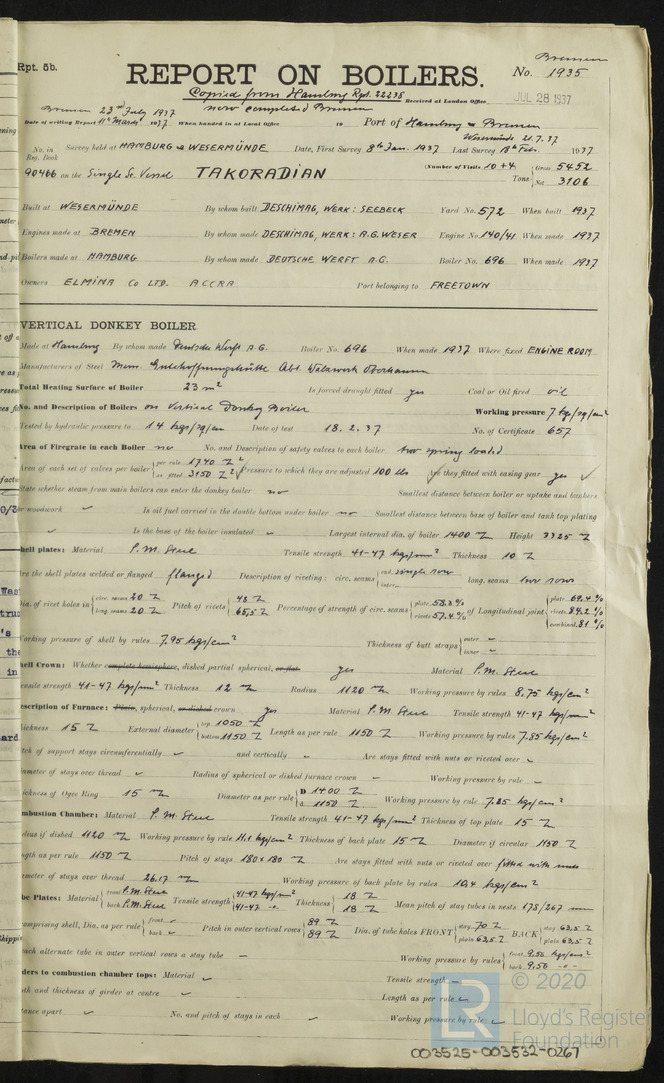 Bremen
Rpt. 5b.
No. 1935
REPORT ON BOILERS.
Copied from Hamburg Rpt. 22235
now completed Bremen
Received at London Office JUL 28 1937
Bremen 23rd July 1937
Date of writing Report 11th March 1937 When handed in at Local Office 19 Port of Hamburg & Bremen
Wesermünde 21.7.37
No. in Reg. Book Survey held at HAMBURG & WESERMÜNDE Date, First Survey 8th Jan. 1937 Last Survey 18th Feb. 1937
(Number of Visits 10+4.
90466 on the Single Sc. Vessel TAKORADIAN Tons Gross 5452 Net 3106
Built at WESERMÜNDE By whom built DESCHIMAG, WERK: SEEBECK Yard No. 572 When built 1937
Engines made at BREMEN By whom made DESCHIMAG, WERK: A.G. WESER Engine No. 140/41 When made 1937
Boilers made at HAMBURG By whom made DEUTSCHE WERFT A.G. Boiler No. 696 When made 1937
Owners ELMINA Co LTD. ACCRA Port belonging to FREETOWN
VERTICAL DONKEY BOILER.
Made at Hamburg By whom made Deutsche Werft A.G. Boiler No. 696 When made 1937 Where fixed ENGINE ROOM
Manufacturers of Steel Oberhausen
Total Heating Surface of Boiler 23 m² Is forced draught fitted yes Coal or Oil fired oil
No. and Description of Boilers one Vertical Donkey Boiler Working pressure 7 kgs/sq/cm²
Tested by hydraulic pressure to 14 kgs/sq/cm Date of test 18.2.37 No. of Certificate 657
Area of Firegrate in each Boiler no No. and Description of safety valves to each boiler two spring loaded
Area of each set of valves per boiler per rule 1740 as fitted 3150 Pressure to which they are adjusted 100 lbs Are they fitted with easing gear yes ✓
State whether steam from main boilers can enter the donkey boiler no Smallest distance between boiler or uptake and bunkers
or woodwork ✓ Is oil fuel carried in the double bottom under boiler no Smallest distance between base of boiler and tank top plating
✓ Is the base of the boiler insulated ✓ Largest internal dia. of boiler 1400 Height 3325
Shell plates: Material S.M. Steel Tensile strength 41-47 kgs/mm² Thickness 10
Are the shell plates welded or flanged flanged Description of riveting: circ. seams end single row inter. long. seams two rows
Dia. of rivet holes in circ. seams 20 long. seams 20 Pitch of rivets 48 65,5 Percentage of strength of circ. seams plate 58.3% rivets 57.4% of Longitudinal joint plate 69.4% rivets 84.2% combined 81%
Working pressure of shell by rules 7.95 kgs/cm² Thickness of butt straps outer ✓ inner ✓
Shell Crown: Whether complete hemisphere, dished partial spherical, or flat yes Material S.M. Steel
Tensile strength 41-47 kgs/mm² Thickness 12 Radius 1120 Working pressure by rules 8,75 kgs/cm²
Description of Furnace: Plain, spherical, or dished crown yes Material S.M. Steel Tensile strength 41-47 kgs/mm²
Thickness 15 External diameter top 1050 bottom 1150 Length as per rule 1150 Working pressure by rules 7.85 kgs/cm²
Pitch of support stays circumferentially ✓ and vertically ✓ Are stays fitted with nuts or riveted over ✓
Diameter of stays over thread ✓ Radius of spherical or dished furnace crown ✓ Working pressure by rule ✓
Thickness of Ogee Ring 15 Diameter as per rule D 1400 d 1150 Working pressure by rule 7.85 kgs/cm²
Combustion Chamber: Material S.M. Steel Tensile strength 41-47 kgs/mm² Thickness of top plate 15
Radius if dished 1120 Working pressure by rule 11.1 kgs/cm² Thickness of back plate 15 Diameter if circular 1150
Length as per rule 1150 Pitch of stays 180 x 180 Are stays fitted with nuts or riveted over fitted with nuts
Diameter of stays over thread 26.17 Working pressure of back plate by rules 10,4 kgs/cm²
Tube Plates: Material front S.M. Steel back S.M. Steel Tensile strength 41-47 kgs/mm² 41-47 Thickness 18 18 Mean pitch of stay tubes in nests 178/267 mm
comprising shell, Dia. as per rule front ✓ back ✓ Pitch in outer vertical rows 89 89 Dia. of tube holes FRONT stay 70 plain 63,5 BACK stay 63,5 plain 63,5
each alternate tube in outer vertical rows a stay tube Working pressure by rules front 9,56 kgs/cm² back 9,56
Girders to combustion chamber tops: Material ✓ Tensile strength
Depth and thickness of girder at centre ✓ Length as per rule ✓
Distance apart ✓ No. and pitch of stays in each ✓ Working pressure by rules ✓
LR © 2020
Lloyd's Register
Foundation
003525-003532-0267